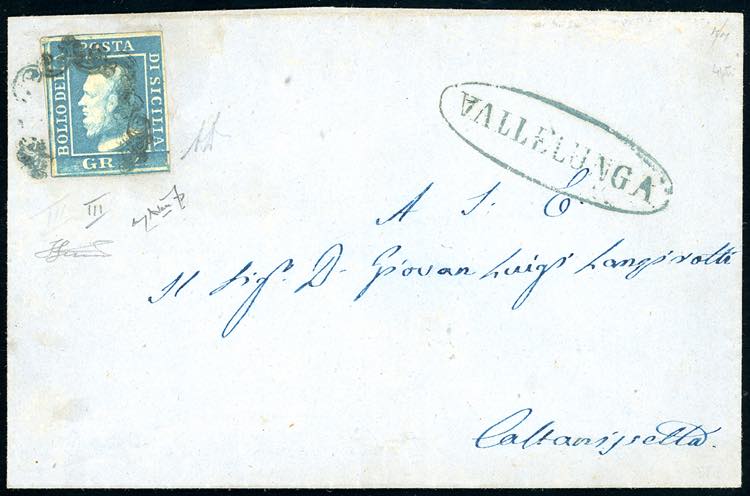 BOLLO DELLA POSTA DI SICILIA
GR
VALLELUNGA
III III
A S. E.
Il Sigr. D. Giovan Luigi Lanzirotti
Caltanissetta.